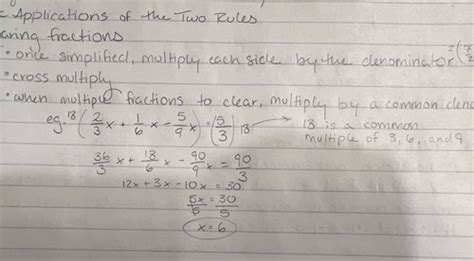 = Applications of the Two Rules
aring fractions
• once simplified, multiply each side by the denominator 2(
• cross multiply
• when multiple fractions to clear, multiply by a common deno
eg. 18 ( 2/3 x + 1/6 x - 5/9 x ) = ( 5/3 ) 18 → 18 is a common
multiple of 3, 6, and 9
36/3 x + 18/6 x - 90/9 x = 90/3
12x + 3x - 10x = 30
5x/5 = 30/5
x = 6